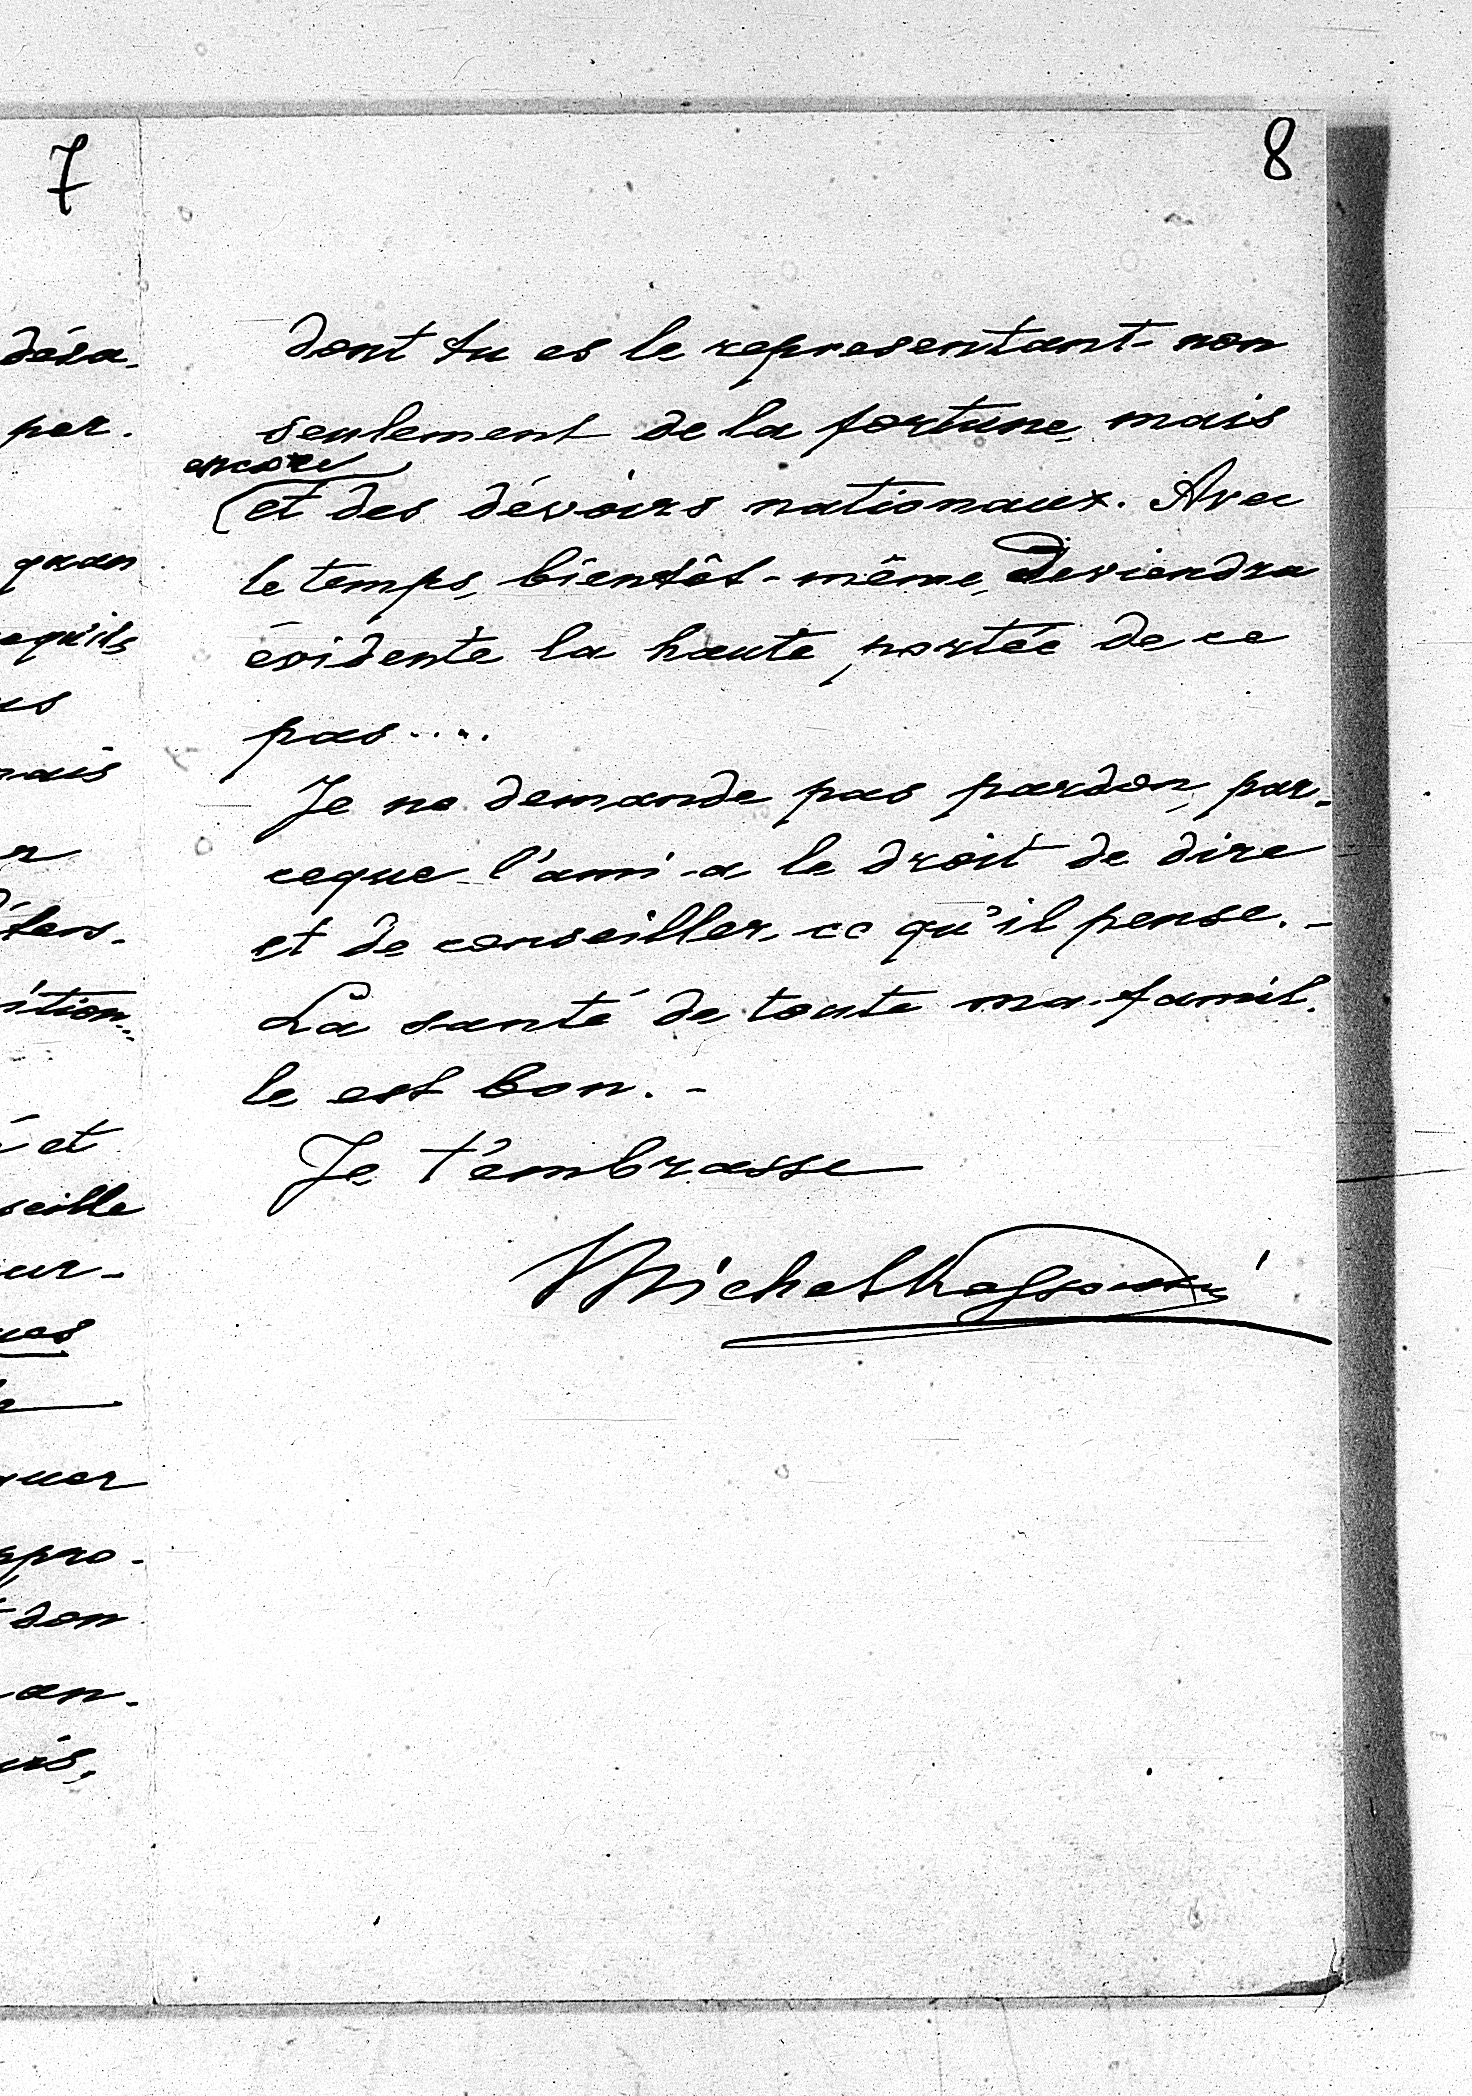 7
déra-
per.
quan
equ'ils
us
mais
r
é et
seille
ur-
ues
quer
ppro-
don
an-
8
dont tu es le representant non
seulement de la fortune, mais
encore
et des dévoirs nationaux. Avec
le temps, bientôt-même, deviendra
évidente la haute portée de ce
pas....
Je ne demande pas pardon, par-
ceque l'ami a le droit de dire
et de conseiller, ce qu'il pense. -
La santé de toute ma famil-
le est bon. -
Je t'embrasse